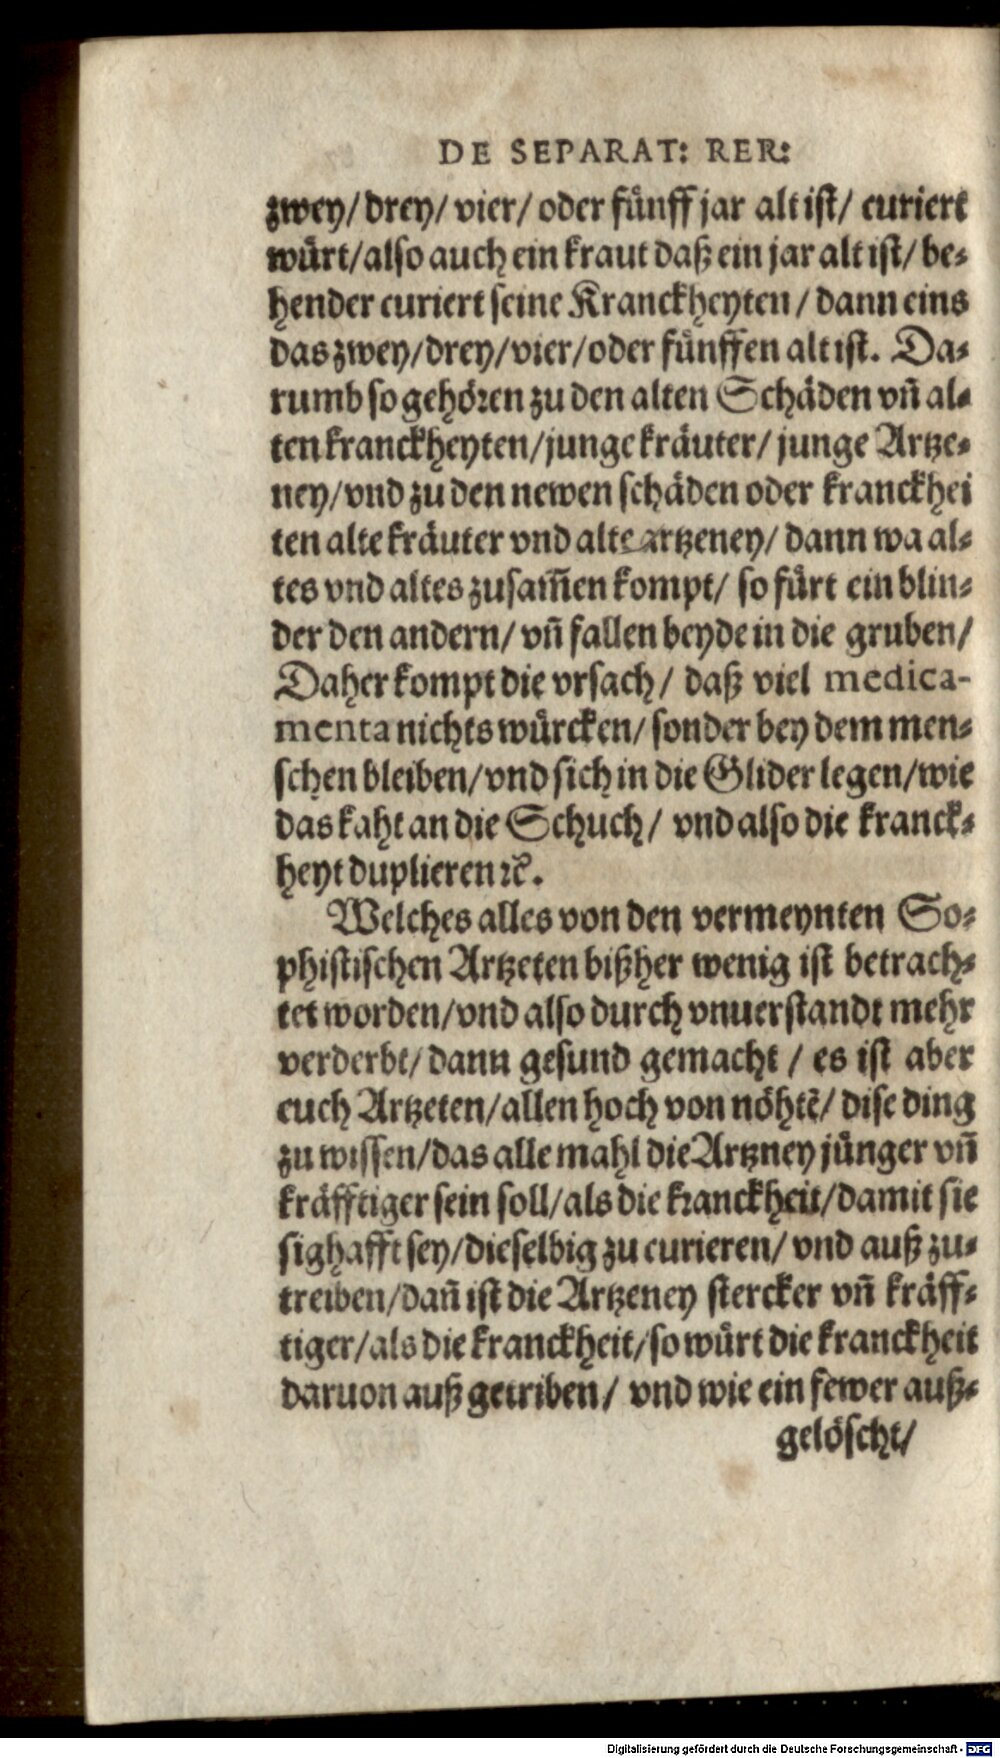 DE SEPARAT: RER:
zwey/ drey/ vier/ oder fünff jar alt ist/ curiert
würt/ also auch ein kraut daß ein jar alt ist/ be⸗
hender curiert seine Kranckheyten/ dann eins
das zwey/ drey/ vier/ oder fünffen alt ist. Da⸗
rumb so gehören zu den alten Schäden vñ al⸗
ten kranckheyten/ junge kräuter/ junge Artze⸗
ney/ vnd zu den newen schäden oder kranckhei
ten alte kräuter vnd alte artzeney/ dann wa al⸗
tes vnd altes zusam̃en kompt/ so fürt ein blin⸗
der den andern/ vñ fallen beyde in die gruben/
Daher kompt die vrsach/ daß viel medica-
menta nichts würcken/ sonder bey dem men⸗
schen bleiben/ vnd sich in die Glider legen/ wie
das kaht an die Schuch/ vnd also die kranck⸗
heyt duplieren ꝛc̃.
Welches alles von den vermeynten So⸗
phistischen Artzeten bißher wenig ist betrach⸗
tet worden/ vnd also durch vnuerstandt mehr
verderbt/ dann gesund gemacht/ es ist aber
euch Artzeten/ allen hoch von nöhtẽ/ dise ding
zu wissen/ das alle mahl die Artzney jünger vñ
kräfftiger sein soll/ als die kranckheit/ damit sie
sighafft sey/ dieselbig zu curieren/ vnd auß zu⸗
treiben/ dañ ist die Artzeney stercker vñ kräff⸗
tiger/ als die kranckheit/ so würt die kranckheit
daruon auß getriben/ vnd wie ein fewer auß⸗
gelöscht/
Digitalisierung gefördert durch die Deutsche Forschungsgemeinschaft - DFG